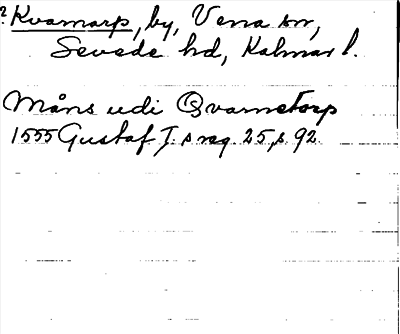 ? Kvarnarp, by, Vena sn,
Sevede hd, Kalmar l.
Måns udi Qvarnetorp
1555 Gustaf I:s reg. 25, s. 92.